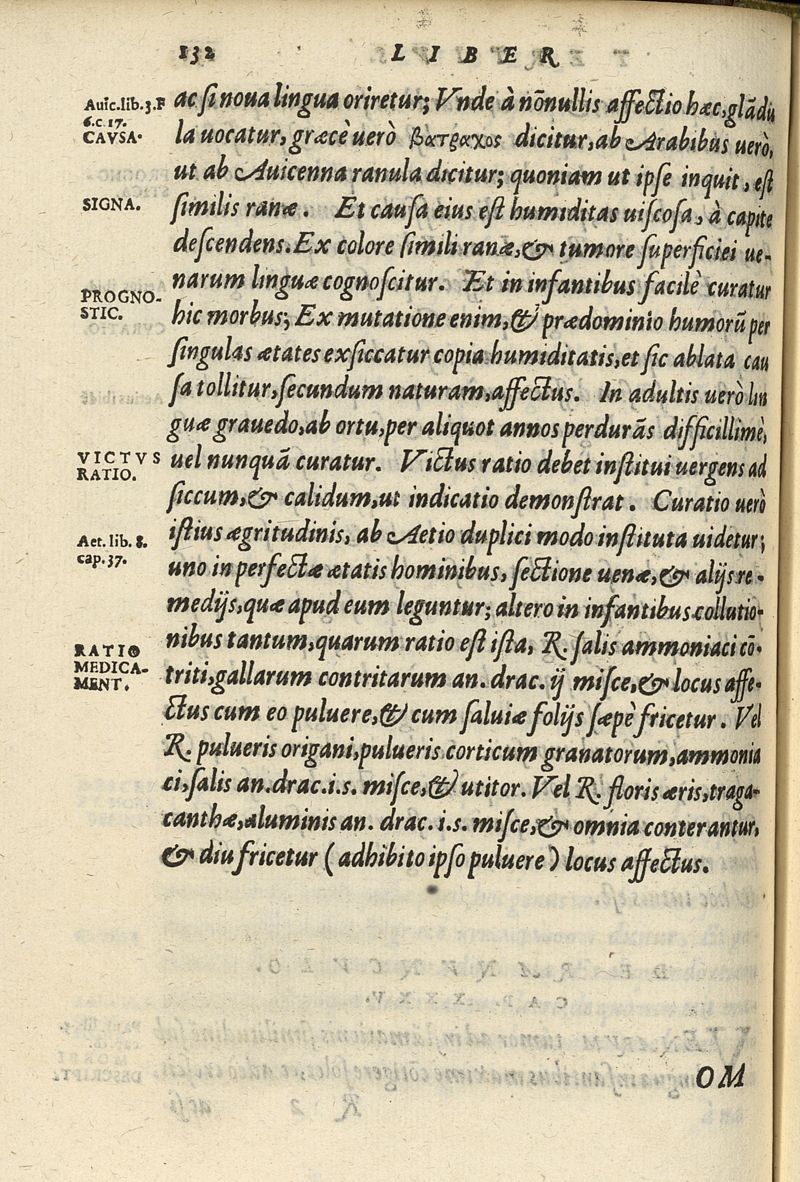 132 LIBER
Auic.lib.3.F
6.c.17.
CAVSA.
SIGNA.
PROGNO-
STIC.
VICTVS
RATIO.
Aet. lib. 8.
cap. 37.
RATIO
MEDICA-
MENT.
ac ſi noua lingua oriretur; Vnde à nõnullis affectio hæc, glãdu
la uocatur, græcè uerò βατραχος dicitur, ab Arabibus uerò,
ut ab Auicenna ranula dicitur; quoniam ut ipſe inquit, eſt
ſimilis ranæ. Et cauſa eius eſt humiditas uiſcoſa, à capite
deſcendens. Ex colore ſimili ranæ, & tumore ſuperficiei ue-
narum linguæ cognoſcitur. Et in infantibus facilè curatur
hic morbus; Ex mutatione enim, & prædominio humorũ per
ſingulas ætates exſiccatur copia humiditatis, et ſic ablata cau
ſa tollitur, ſecundum naturam, affectus. In adultis uerò lin
guæ grauedo, ab ortu, per aliquot annos perdurãs difficillimè,
uel nunquã curatur. Victus ratio debet inſtitui uergens ad
ſiccum, & calidum, ut indicatio demonſtrat. Curatio uerò
iſtius ægritudinis, ab Aetio duplici modo inſtituta uidetur;
uno in perfectæ ætatis hominibus, ſectione uenæ, & alijs re-
medijs, quæ apud eum leguntur; altero in infantibus collutio-
nibus tantum, quarum ratio eſt iſta, ℞. ſalis ammoniaci cõ-
triti, gallarum contritarum an. drac. ij miſce, & locus affe-
ctus cum eo puluere, & cum ſaluiæ folijs ſæpè fricetur. Vel
℞. pulueris origani, pulueris corticum granatorum, ammonia
ci, ſalis an. drac. i. s. miſce, & utitor. Vel ℞. floris æris, traga-
canthæ, aluminis an. drac. i. s. miſce, & omnia conterantur,
& diu fricetur (adhibito ipſo puluere) locus affectus.
OM